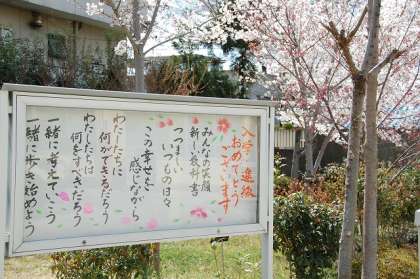 入学・進級
おめでとう
ございます
みんなの笑顔
新しい教科書
つつましい
いつもの日々
この幸せを
感じながら
わたしたちに
何ができるだろう
わたしたちは
何をすべきだろう
一緒に考えていこう
一緒に歩き始めよう